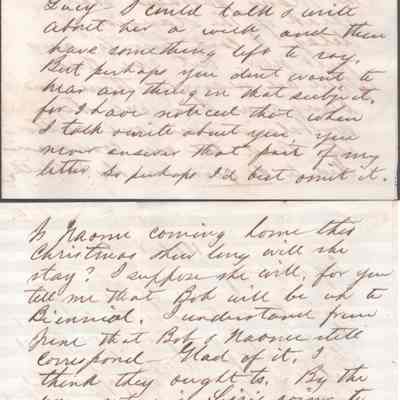 Lucy - I could talk & write
about her a week and then
have something left to say.
But perhaps you dont want to
hear any thing in that subject.
for I have noticed that when
I talk or write about you, you
never answer that part of my
letter so perhaps I'd best omit it.
Is Naomi coming home this
Christmas & how long will she
stay? I suppose she will, for you
tell me that Bob will be up to
Biennial. I understand from
that Bob & Naomi still
correspond - Glad of it. I
think they ought to. By the
going to